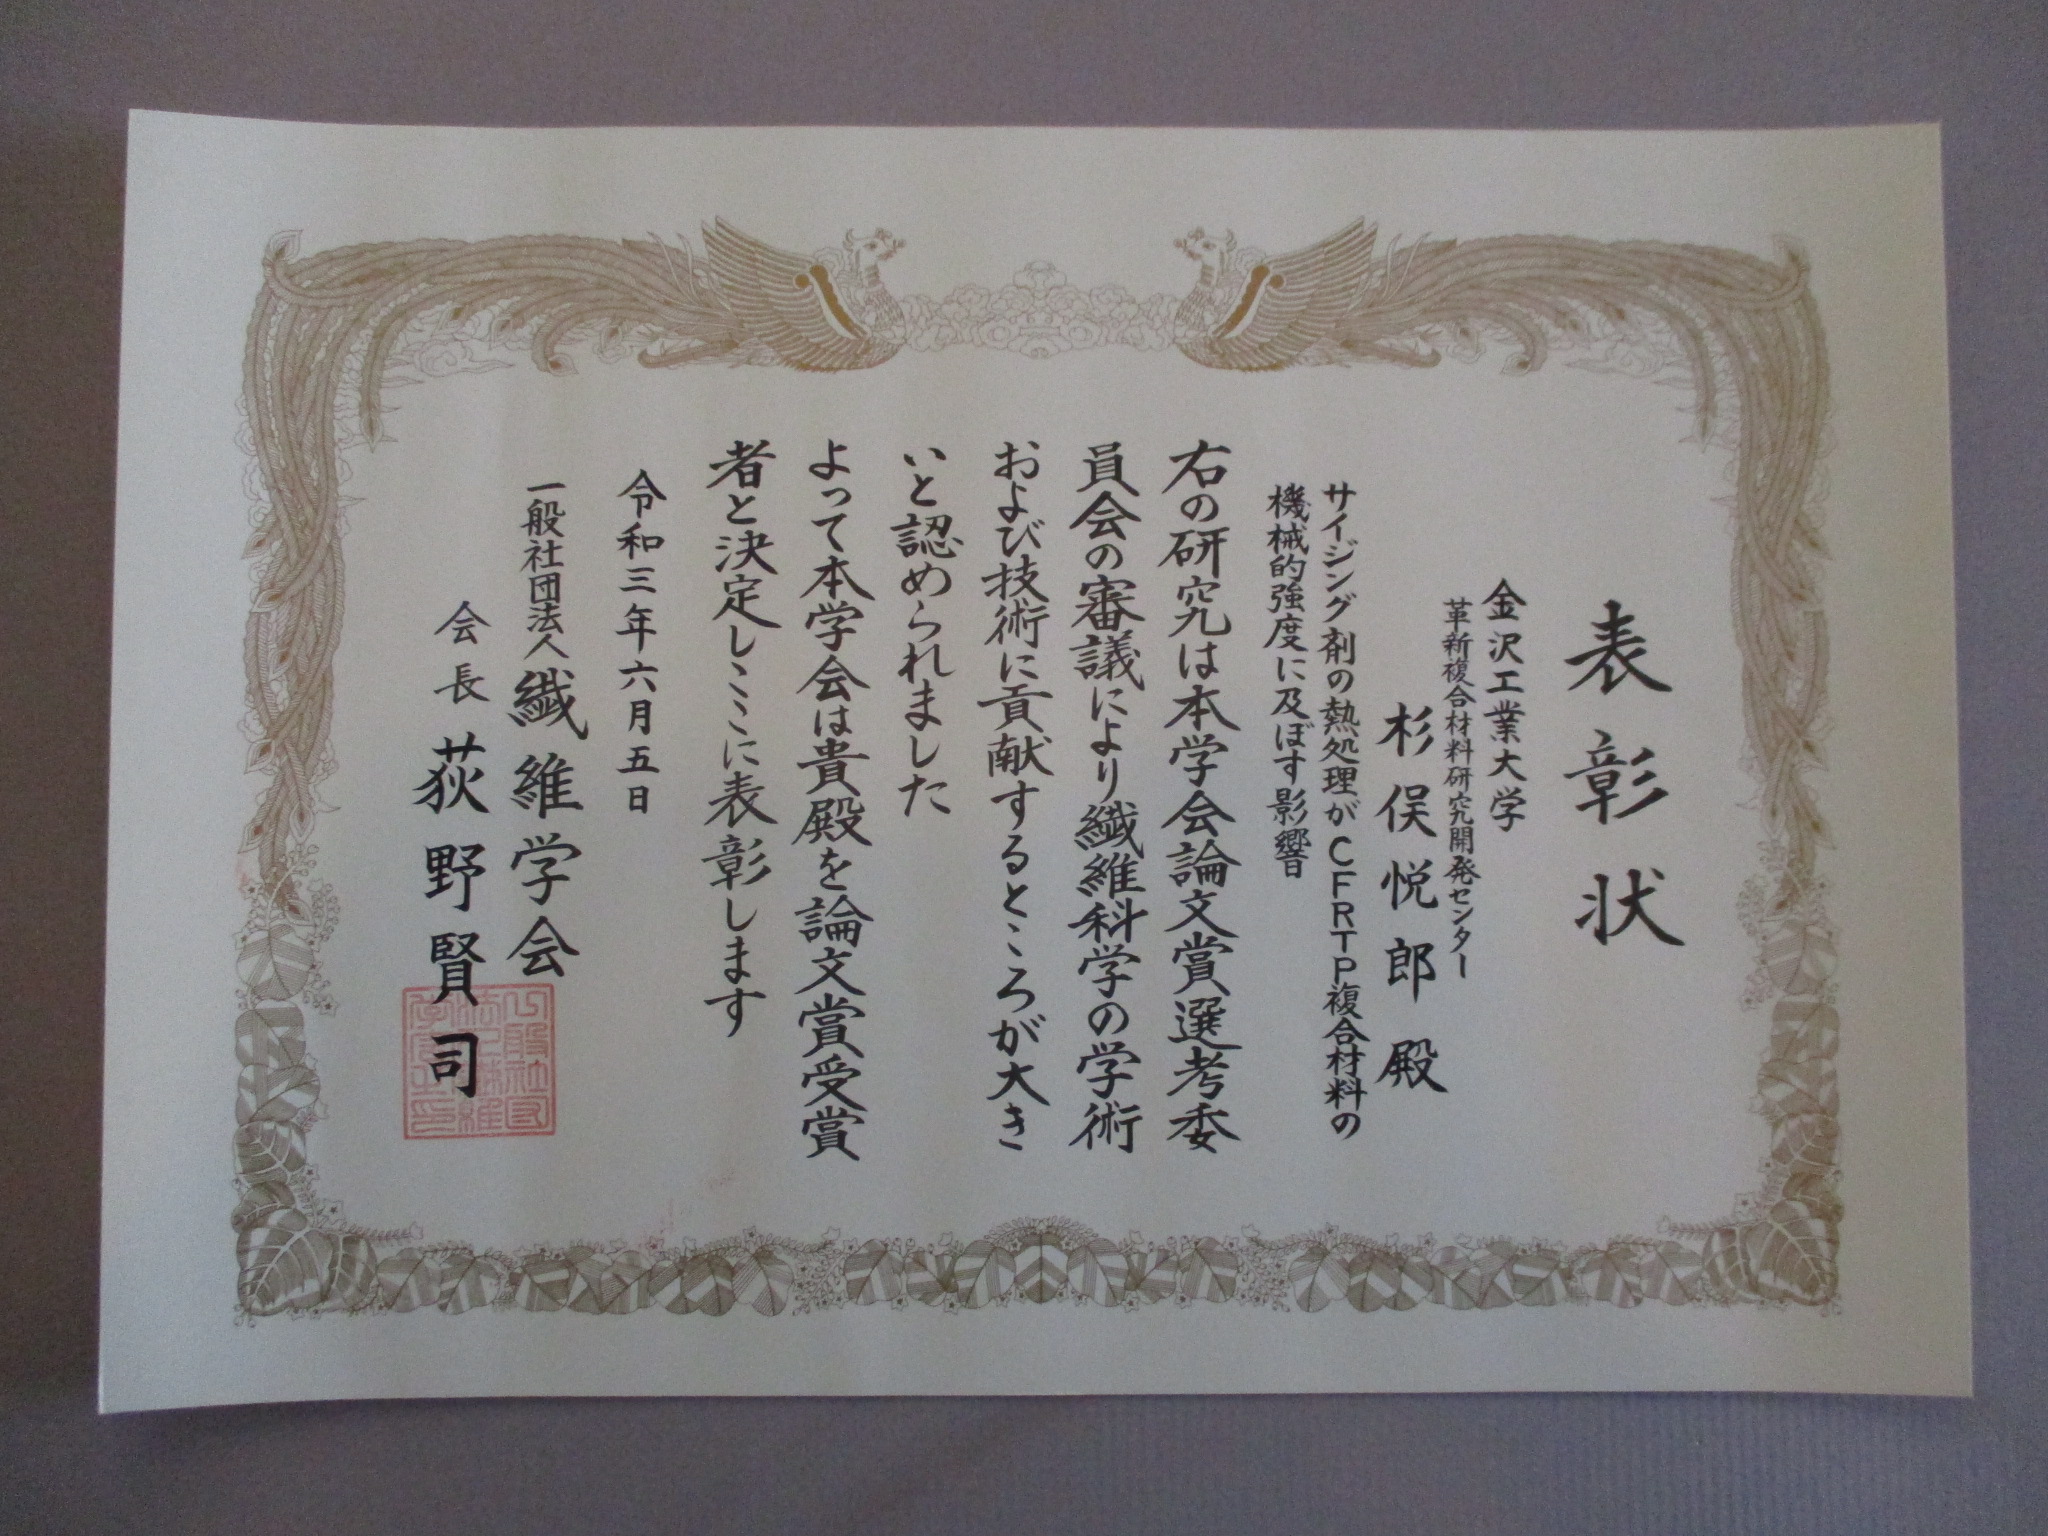 表彰状
金沢工業大学
革新複合材料研究開発センター
杉俣悦郎殿
サイジング剤の熱処理がCFRTP複合材料の
機械的強度に及ぼす影響
右の研究は本学会論文賞選考委
員会の審議により繊維科学の学術
および技術に貢献するところが大き
いと認められました
よって本学会は貴殿を論文賞受賞
者と決定しここに表彰します
令和三年六月五日
一般社団法人繊維学会
会長荻野賢司